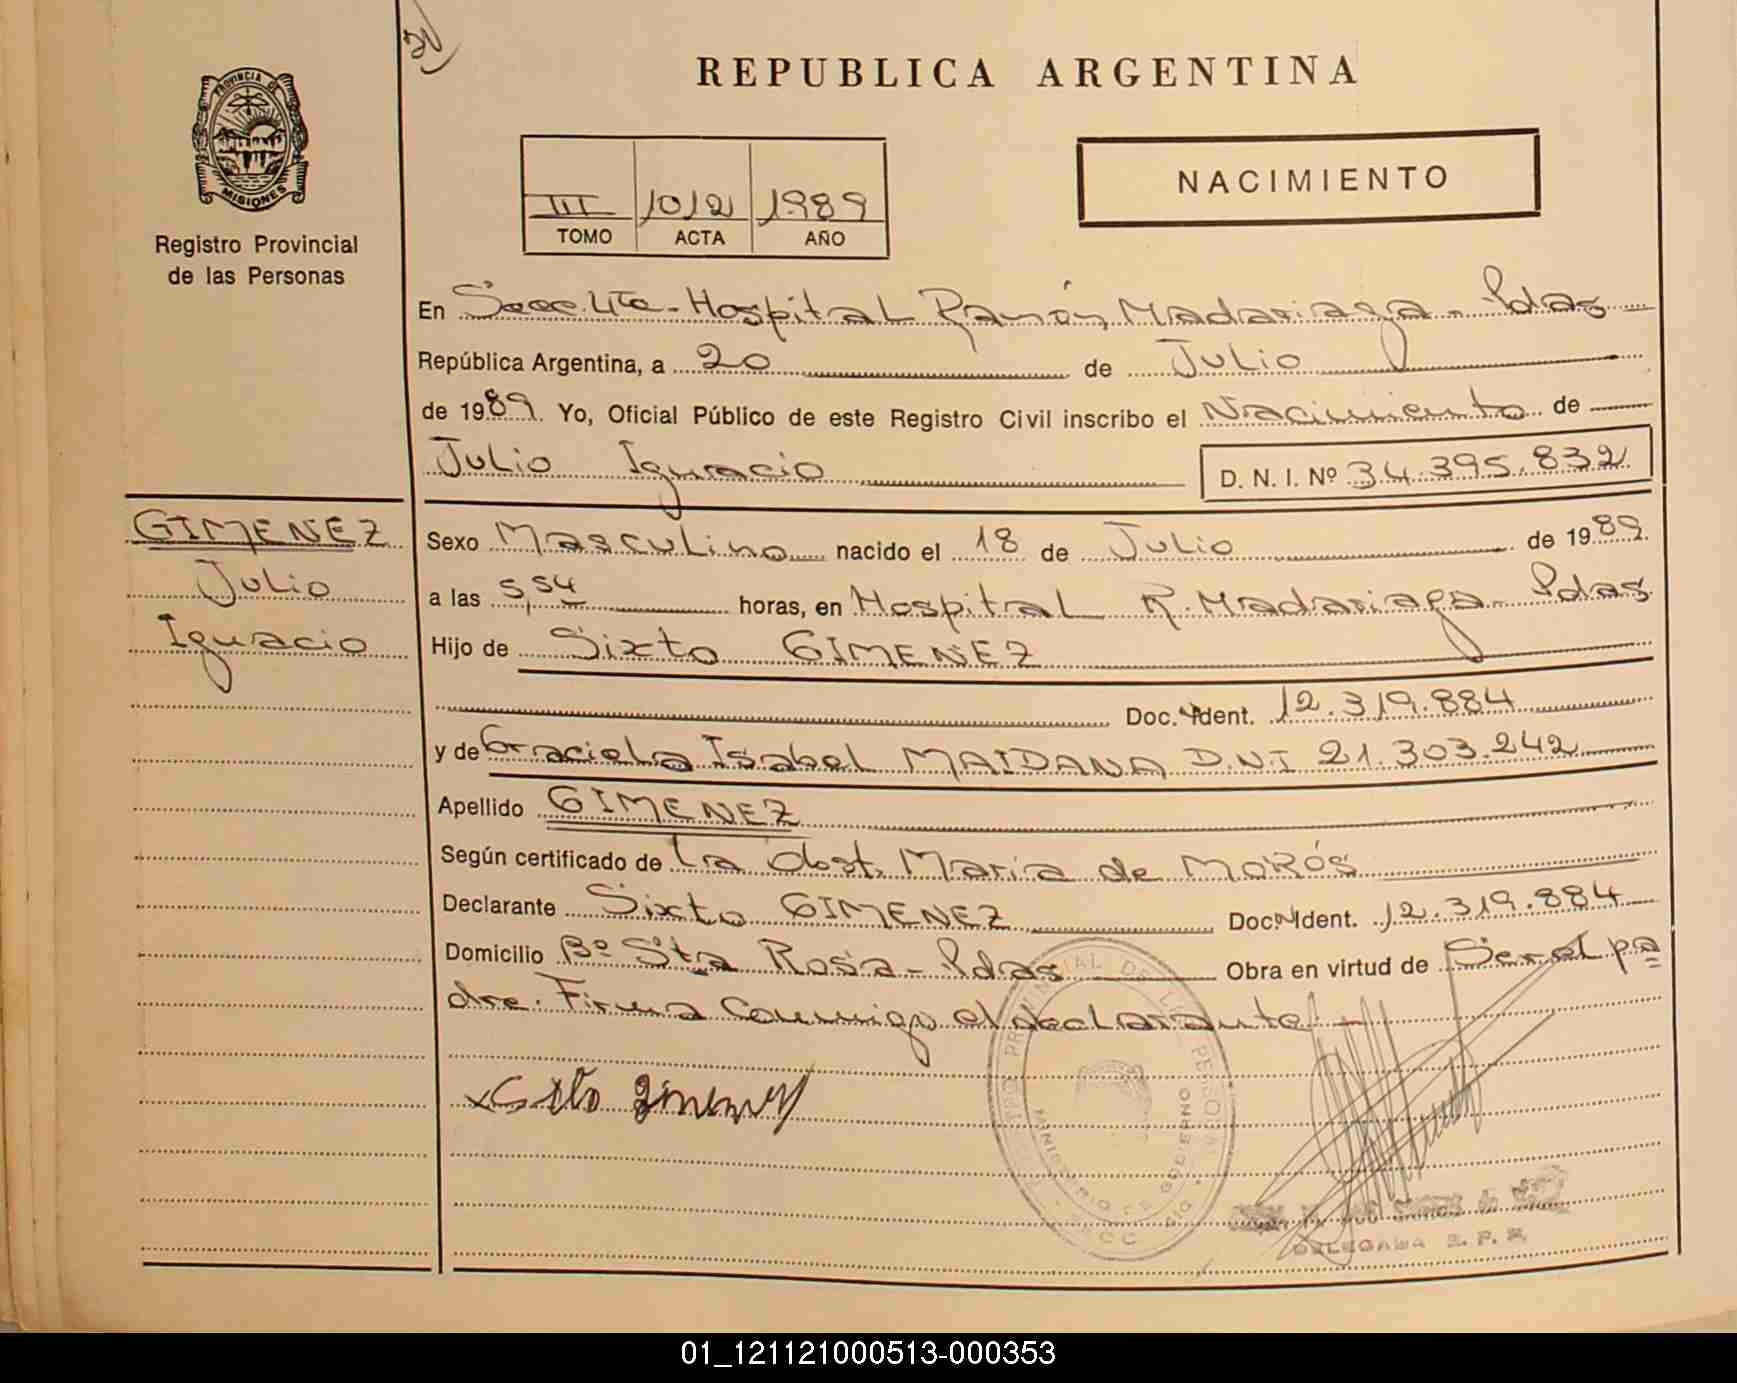 REPUBLICA ARGENTINA
PROVINCIA DE
MISIONES
Registro Provincial
de las Personas
III 1012 1989
TOMO ACTA AÑO
NACIMIENTO
En Secc. 4ta - Hospital Ramón Madariaga - Pdas
República Argentina, a 20 de Julio
de 1989. Yo, Oficial Público de este Registro Civil inscribo el Nacimiento de
Julio Ignacio D. N. I. Nº 34.395.832
GIMENEZ
Julio
Ignacio
Sexo Masculino nacido el 18 de Julio de 1989.
a las 5,54 horas, en Hospital R. Madariaga - Pdas
Hijo de Sixto GIMENEZ
Doc. Ident. 12.319.884
y de Graciela Isabel MAIDANA D.N.I 21.303.242
Apellido GIMENEZ
Según certificado de La Obst. Maria de MOROS
Declarante Sixto GIMENEZ Doc. Ident. 12.319.884
Domicilio Bº Sta Rosa - Pdas Obra en virtud de Ser el pa
dre. Firma Conmigo el declarante. -
DELEGADA R. P. P.
01_121121000513-000353